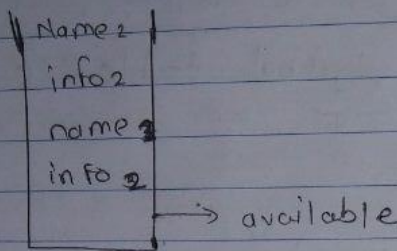 Name2
info2
name
info 2
available